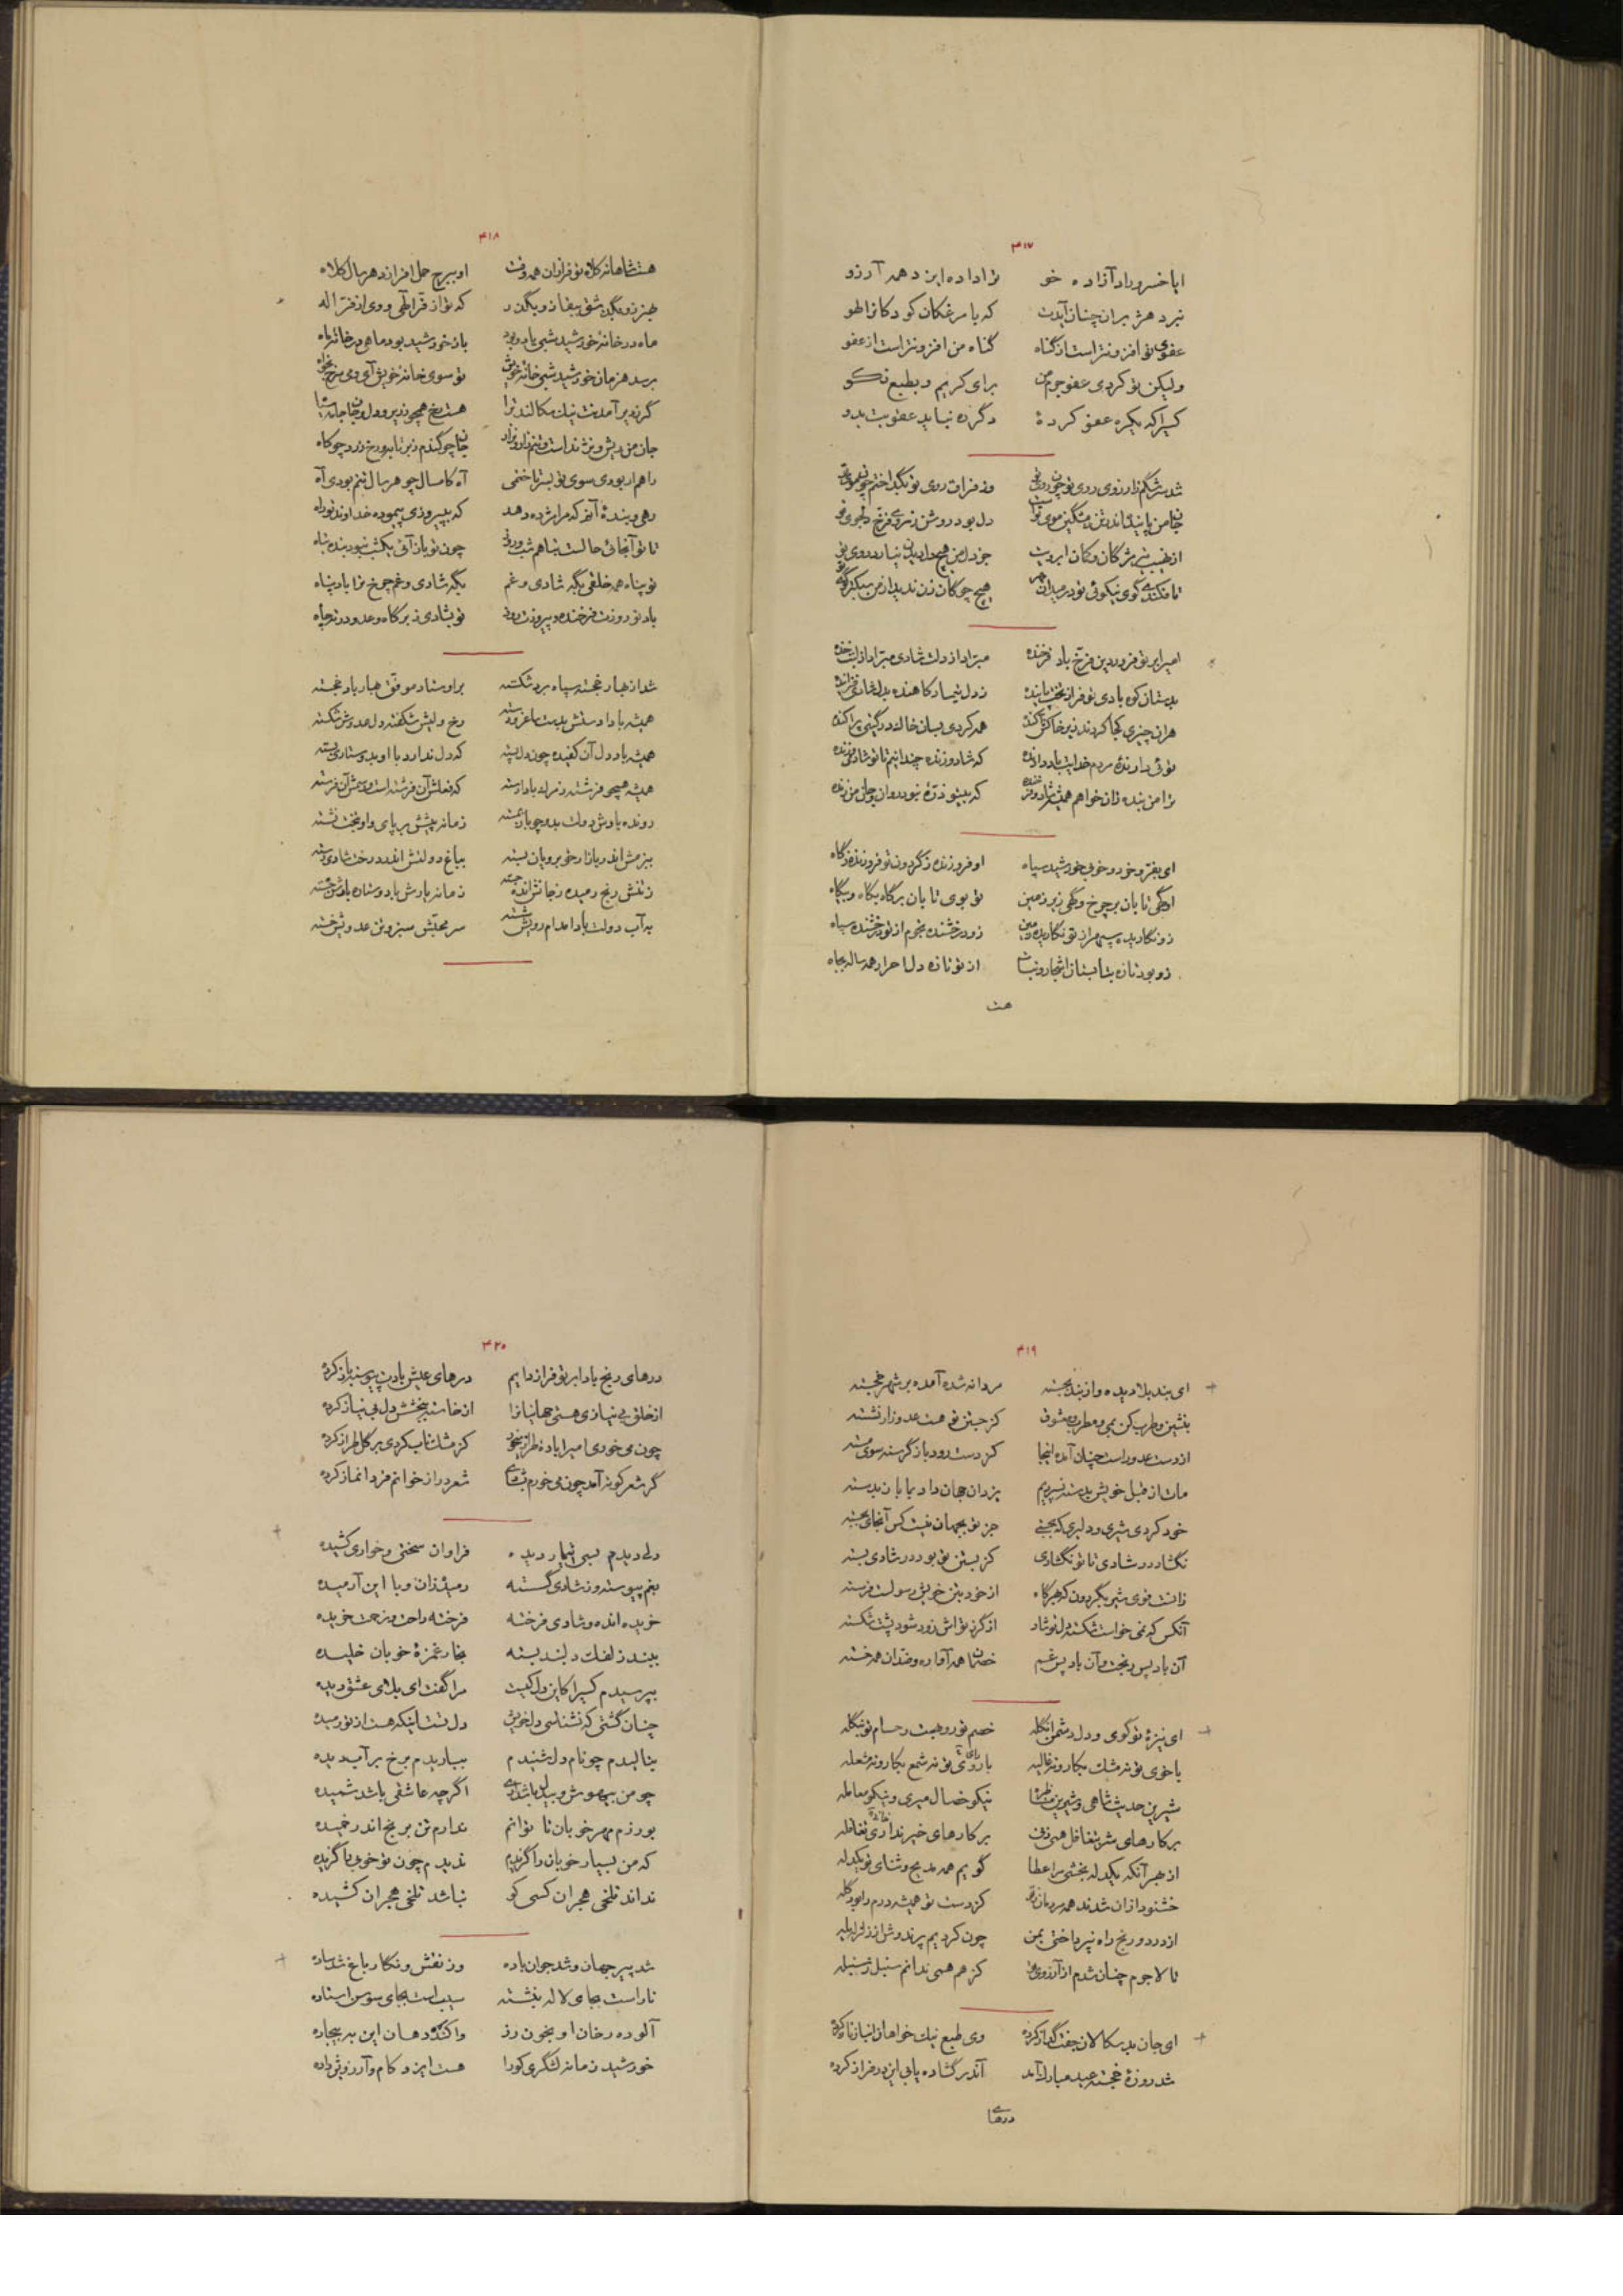 ۴۱۷
ایا خسرو راد آزاده خو ترا داده ایزد همه آرزو
نبرد هژبران چنان آیدت که با مرغکان کودکانرا لهو
عفوی تو افزونتر است از گناه گناه من افزونتر است از عفو
ولیکن تو کردی عفو جرم من برای کریم و بطبع نکو
کسیرا که یکره عفو کردهٔ دگر ره نباید عقوبت بدو
شد سرشکم ز آرزوی روی تو چون روی تو وز فراق روی تو بگداختم چون موی تو
جان من پابند اندر مشکین موی تو دل بود روشن ز روی فرخ دلجوی تو
از مژگان و کمان ابرویت جز دل من هیچ دل نیارد روی تو
تا فکندی گوی نیکوئی تو در میدان هیچ چوگان زن ندید از من سبکتر گوی
امیرا بر تو فروردین فرخ باد فرخنده مبراد از دلت شادی مبراد از لبت خنده
بدستان کوه بادی تو فراز تخت پاینده ز دل تیمار کاهنده بدل شادی فزاینده
هران چیزی کجا کردند زیر خاک آکنده همه کردی بسان خاک در گیتی پراکنده
توئی دارندهٔ مردم خدایت باد دارنده که شاد و زنده چندانیم تا تو شادی و زنده
ترا من بنده زان خواهم همیشه شاد و در خنده که بیتو ذرهٔ نبود روان و جان من زنده
ای بفر و خرد و خوبی خورشید سپاه او فروزنده ز گردون تو فروزنده ز گاه
او گهی تابان بر چرخ و گهی زیر زمین تو بوی تابان بر گاه بگاه و بیگاه
زو نگاریده سپهر از تو نگاریده زمین زو درخشنده نجوم از تو درخشنده سپاه
زو بود تازه بتابستان اشجار و نبات از تو تازه دل احرار همه ساله بجاه
هست
۴۱۸
هست شاهانه کلاه تو فرازان همه وقت او ببرج حمل افرازد هر سال کلاه
که تو از فر الهی و وی از فر اله
ماه در خانهٔ خورشید شبی باد و بود باز خورشید بود ماهی در خانهٔ ماه
برسد هر زمان خورشید شبی خانهٔ خویش تو سوی خانهٔ خویش آی و می سرخ بخواه
گر نه دیر آمدنت نیک مکالند ترا
جان من ریش و نژند است و تنم زار و نزار
راهم ار بودی سوی تو بستر تاختمی آه کامسال چو هر سال تنم بودی آه
رهی و بندهٔ آنم که مرا مژده دهد که بپیروزی پیموده خداوند تو راه
تا تو آنجائی حالست تباهم شب و روز چون تو باز آئی یکشب نبود بنده تباه
تو پناه همه خلقی بگه شادی و غم بگه شادی و غم چرخ ترا باد پناه
باد نوروزت فرخنده و پیروزت روز تو بشادی ز بر گاه و عدو در تک چاه
شد از بهار خجسته سپاه برد شکسته بر اوستاد موفق بهار باد خجسته
رخ ولیش شکفته دل عدوش شکسته
همیشه باد دل آن کفیده چون دل پسته که دل ندارد با او بدوستداری بسته
همیشه همچو فرشته ز مرگ بادا رسته که فعلش آن فرشته است و رسمش آن فرسته
رونده بادش دولت بدو چو باد نشسته زمانه پیشش بر پای و او بتخت نشسته
ببزمش اندر بازار خوبرویان بسته بباغ دولتش اندر درخت شادی رسته
ز تنش رنج رمیده ز جانش انده جسته زمانه یارش با دوستان یارش خسته
به آب دولت بادا مدام رویش شسته سر محبش سبز و تن عدوش خسته
۴۱۹
ای بند بلا دیده و از بند بجسته مردانه شده آمده بر شهر خجسته
بنشین و طرب کن بمی و مطرب و معشوق کز جستن تو هست عدو زار نشسته
از دست عدو راست چنان آمده اینجا کز دست رود باز گرسنه سوی مسته
مات از قبل خویش بدسته نسپردیم یزدان جهان داد بما باز بدسته
خود کردی شیری و دلیری که بجستی جز تو بجهان نیست کس آنجای بجسته
نگشاد در شادی تا تو نگشادی کز بستن تو بود در شادی بسته
زانست قوی شیر بگردون که هر گاه از خویشتن خویش رسولت فرسته
آنکس که نمی خواست شکسته دل تو شاد از گرز تواش زود شود پشت شکسته
آن باد پس رنجت و آن باد پس غم خصمانت همه آواره و ضدان همه خسته
ای نیزهٔ تو گوی و دل دشمن انگله خصم تو روبهست و حسام تو تنگله
با خوی تو نه مشک بکار و نه غالیه با رای تو نه شمع بکار و نه مشعله
شیرین حدیث شاهی و شیرین مناظره نیکو خصال میری و نیکو معامله
بر کارهای شر بتغافل همی روی بر کارهای خیر نداری تغافله
از بهر آنکه یکدله بخشی مرا عطا گویم همه مدیح و ثنای تو یکدله
خشنود ازان شدند همه مردمان ز تو کز دست تو همیشه درم را بود گله
از درد و رنج راه نپرداختی بمن چون کردیم پرندوش از زلزله یله
تا لاجرم چنان شدم از آرزوی می کز هم همی ندانم سنبل ز سنبله
ای جان بدسگالان جفت گداز کرده وی طبع نیکخواهان انباز ناز کرده
شد روزهٔ خجسته عید مبارک آمد آندر گشاده یابی این در فراز کرده
درهای
۴۲۰
درهای رنج بادا بر تو فراز دایم درهای عیش بادت پیوسته باز کرده
از خلق بی نیازی هستی جهانیانرا از خاسته ببخشش دل بی نیاز کرده
چون می خوری امیرا بادهٔ طرازی خور کز مشک ناب کردی بر گل طراز کرده
گر شعر کوته آمد چون می خورم بشادی شعر دراز خوانم فردا نماز کرده
دلی دیدم بسی تیمار دیده فراوان سختی و خواری کشیده
بغم پیوسته وز شادی گسسته رمیده زان و با این آرمیده
خریده انده و شادی فروخته فروخته راحت و زحمت خریده
ببند زلفک دلبند بسته بخار غمزهٔ خوبان خلیده
بپرسیدم کسیرا کاین دل کیست مرا گفت ای بلای عشق دیده
چنان گشتی که نشناسی دل خویش دل تست اینکه هست از تو رمیده
بنالیدم چو نام دل شنیدم بباریدم برخ بر آب دیده
چو من بیهوش و بیدل باشدی اگر چه عاشقی باشد شمیده
بورزم مهر خوبان تا توانم ندارم تن برنج اندر خمیده
که من بسیار خوبان را گزیدم ندیدم چون تو خوب ناگزیده
نداند تلخی هجران کسی کو نباشد تلخی هجران کشیده
شد پیر جهان و شد جوان باده وز نقش و نگار باغ شد ساده
نار است بجای لاله بنشسته سیب است بجای سوسن استاده
آلوده رخان او بخون رز واکنده دهان این به بیجاده
خورشید زمانه لشگری کورا هست ایزد کام و آرزوش داده